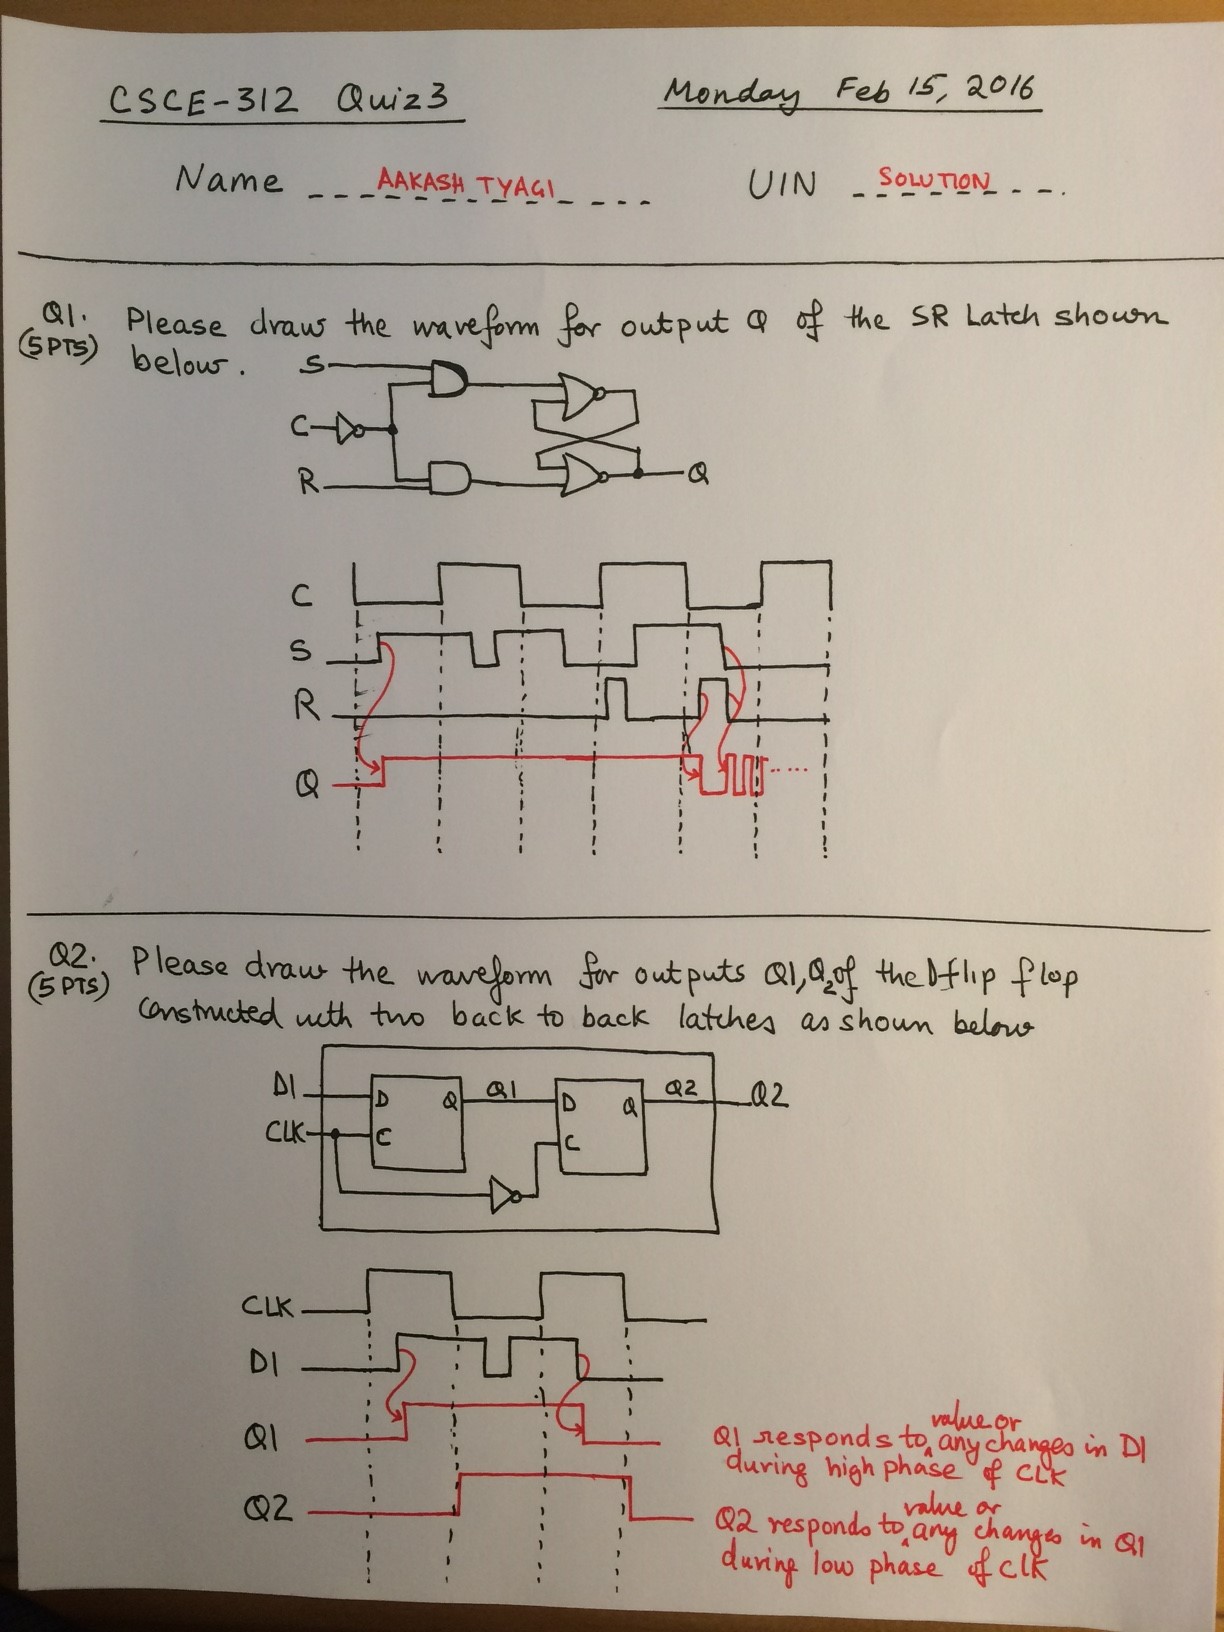 CSCE-312 Quiz3 Monday Feb 15, 2016
Name AAKASH TYAGI UIN SOLUTION
Q1. Please draw the waveform for output Q of the SR Latch shown
(5 PTS) below.
S
C
R
Q
C
S
R
Q
Q2. Please draw the waveform for outputs Q1, Q2 of the D flip flop
(5 PTS) constructed with two back to back latches as shown below
D1 D Q Q1 D Q Q2 Q2
CLK C C
CLK
D1
Q1
Q1 responds to value or any changes in D1
during high phase of CLK
Q2
Q2 responds to value or any changes in Q1
during low phase of clk